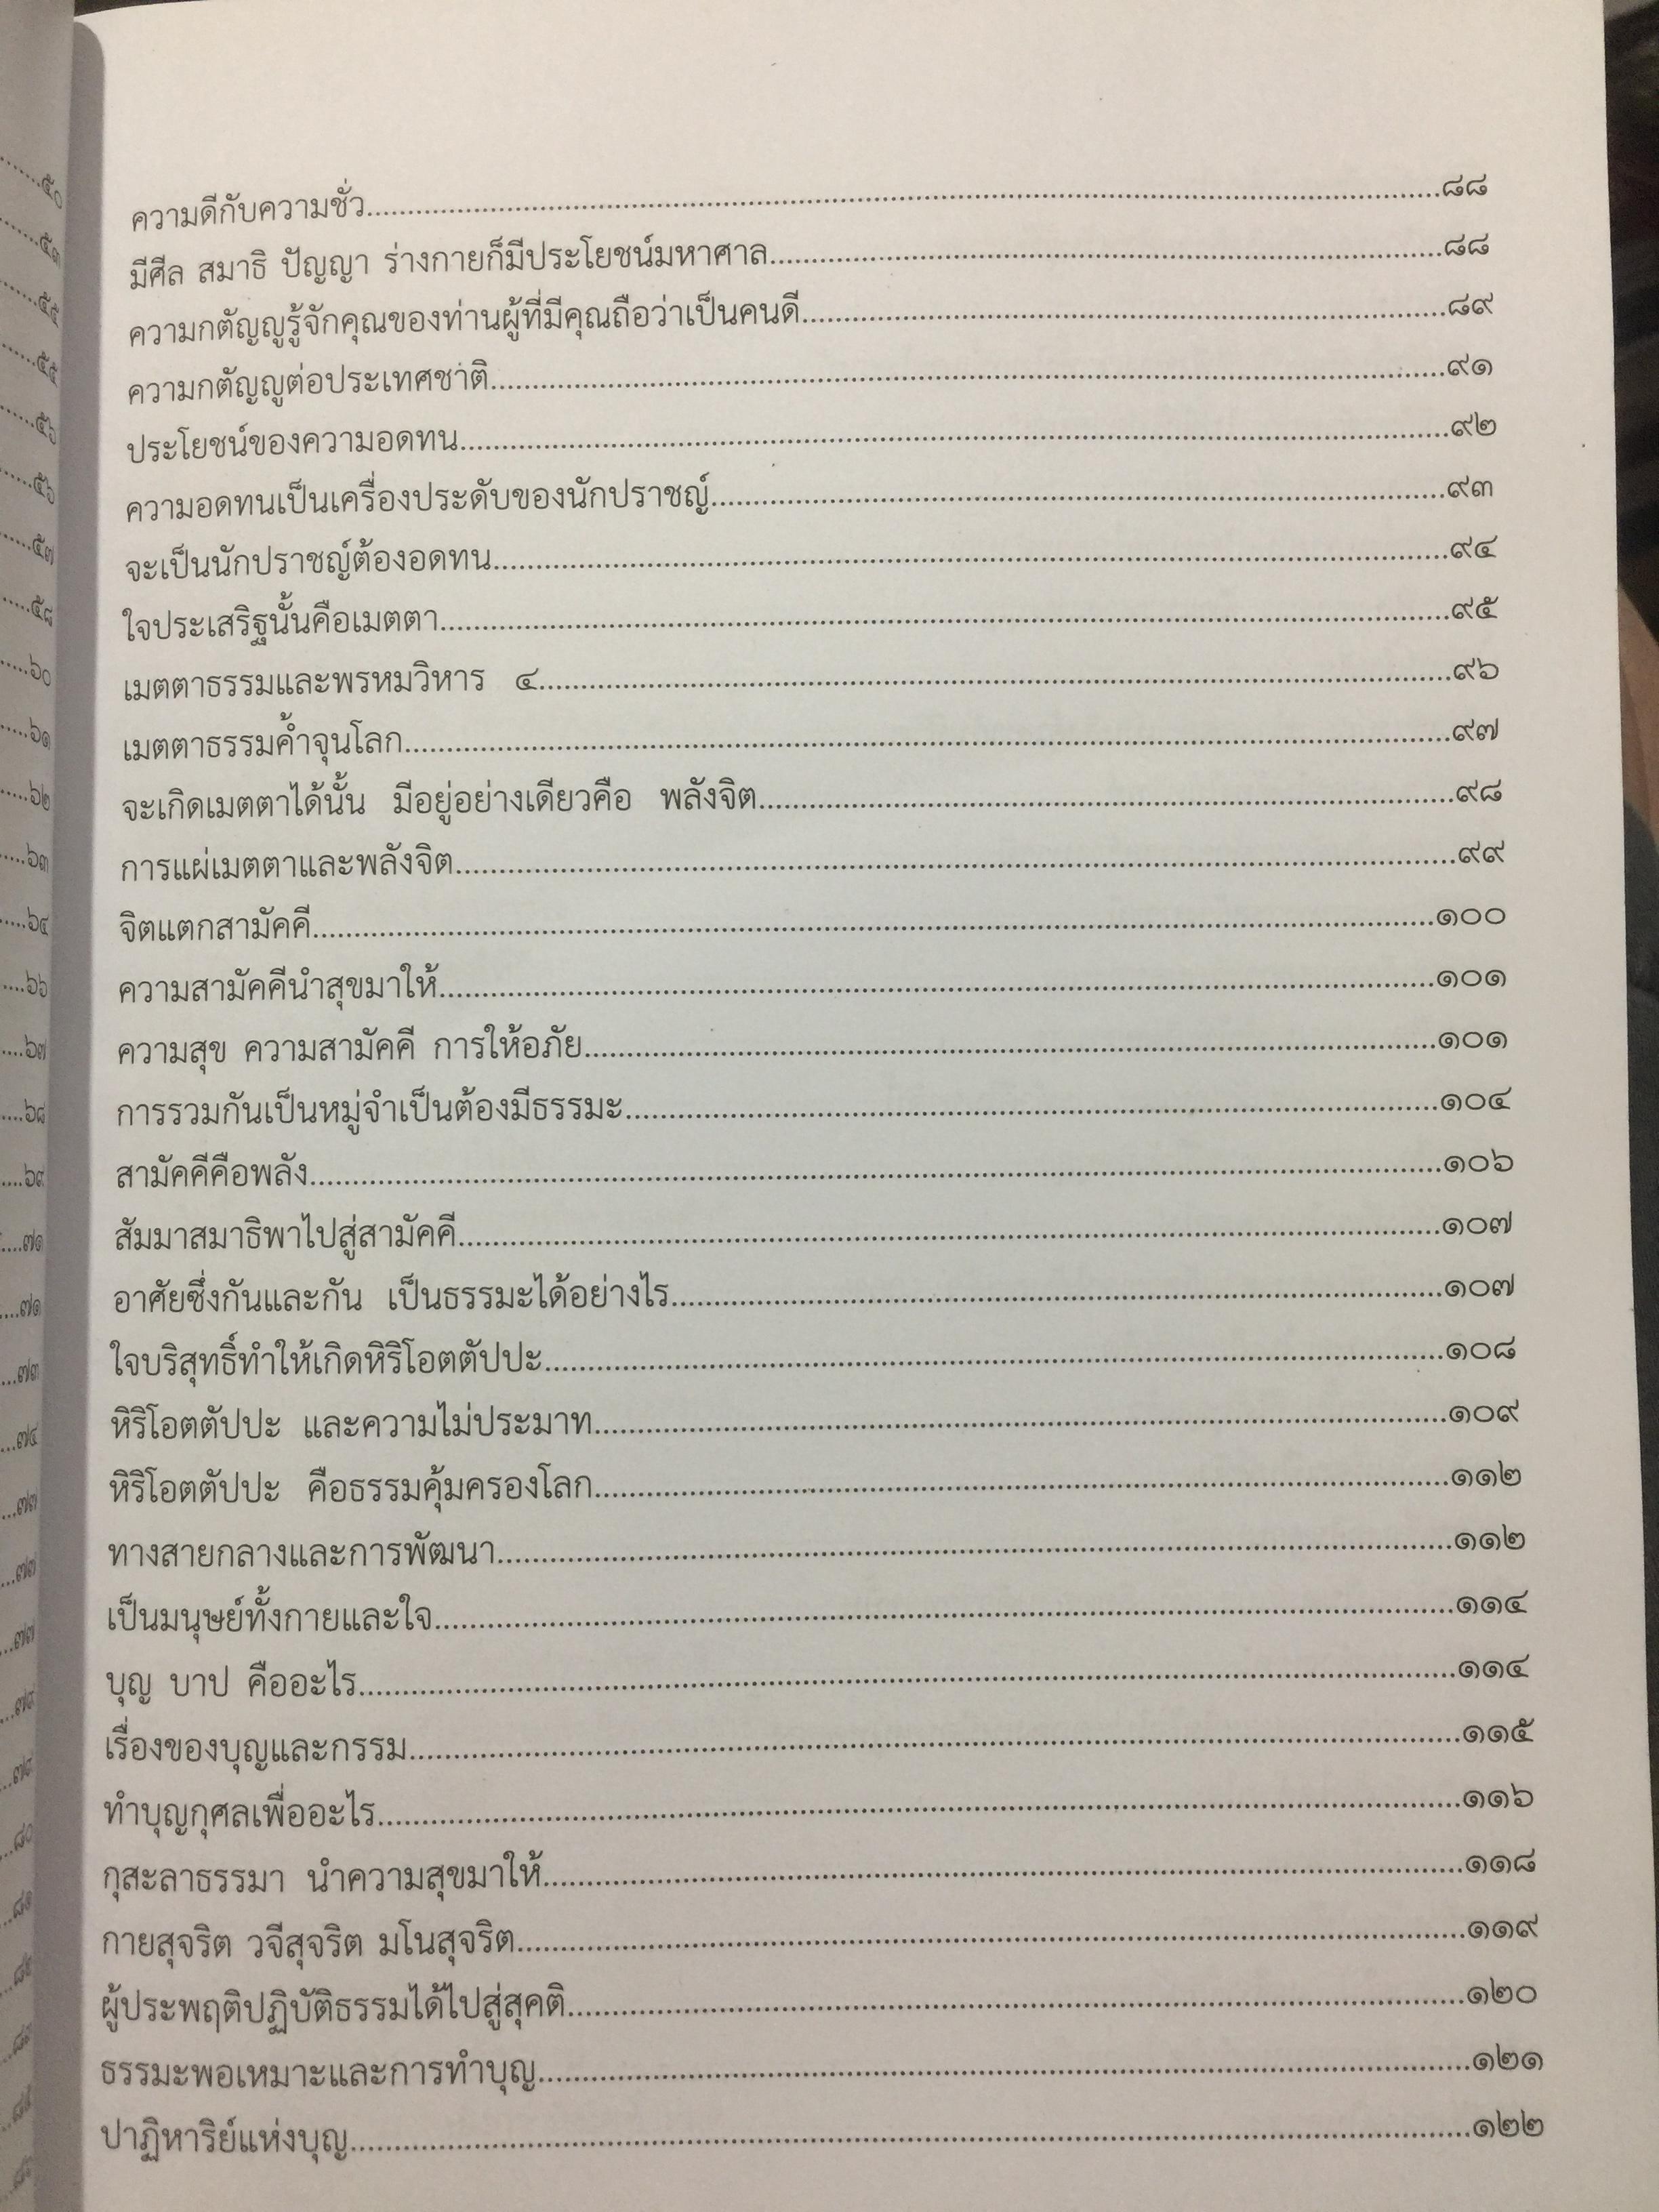 ความดีกับความชั่ว....................๘๘
มีศีล สมาธิ ปัญญา ร่างกายก็มีประโยชน์มหาศาล....................๘๘
ความกตัญญูรู้จักคุณของท่านผู้ที่มีคุณถือว่าเป็นคนดี....................๘๙
ความกตัญญูต่อประเทศชาติ....................๙๑
ประโยชน์ของความอดทน....................๙๒
ความอดทนเป็นเครื่องประดับของนักปราชญ์....................๙๓
จะเป็นนักปราชญ์ต้องอดทน....................๙๔
ใจประเสริฐนั้นคือเมตตา....................๙๕
เมตตาธรรมและพรหมวิหาร ๔....................๙๖
เมตตาธรรมค้ำจุนโลก....................๙๗
จะเกิดเมตตาได้นั้น มีอยู่อย่างเดียวคือ พลังจิต....................๙๘
การแผ่เมตตาและพลังจิต....................๙๙
จิตแตกสามัคคี....................๑๐๐
ความสามัคคีนำสุขมาให้....................๑๐๑
ความสุข ความสามัคคี การให้อภัย....................๑๐๑
การรวมกันเป็นหมู่จำเป็นต้องมีธรรมะ....................๑๐๔
สามัคคีคือพลัง....................๑๐๖
สัมมาสมาธิพาไปสู่สามัคคี....................๑๐๗
อาศัยซึ่งกันและกัน เป็นธรรมะได้อย่างไร....................๑๐๗
ใจบริสุทธิ์ทำให้เกิดหิริโอตตัปปะ....................๑๐๘
หิริโอตตัปปะ และความไม่ประมาท....................๑๐๙
หิริโอตตัปปะ คือธรรมคุ้มครองโลก....................๑๑๒
ทางสายกลางและการพัฒนา....................๑๑๒
เป็นมนุษย์ทั้งกายและใจ....................๑๑๔
บุญ บาป คืออะไร....................๑๑๔
เรื่องของบุญและกรรม....................๑๑๕
ทำบุญกุศลเพื่ออะไร....................๑๑๖
กุสะลาธรรมา นำความสุขมาให้....................๑๑๘
กายสุจริต วจีสุจริต มโนสุจริต....................๑๑๙
ผู้ประพฤติปฏิบัติธรรมได้ไปสู่สุคติ....................๑๒๐
ธรรมะพอเหมาะและการทำบุญ....................๑๒๑
ปาฏิหาริย์แห่งบุญ....................๑๒๒